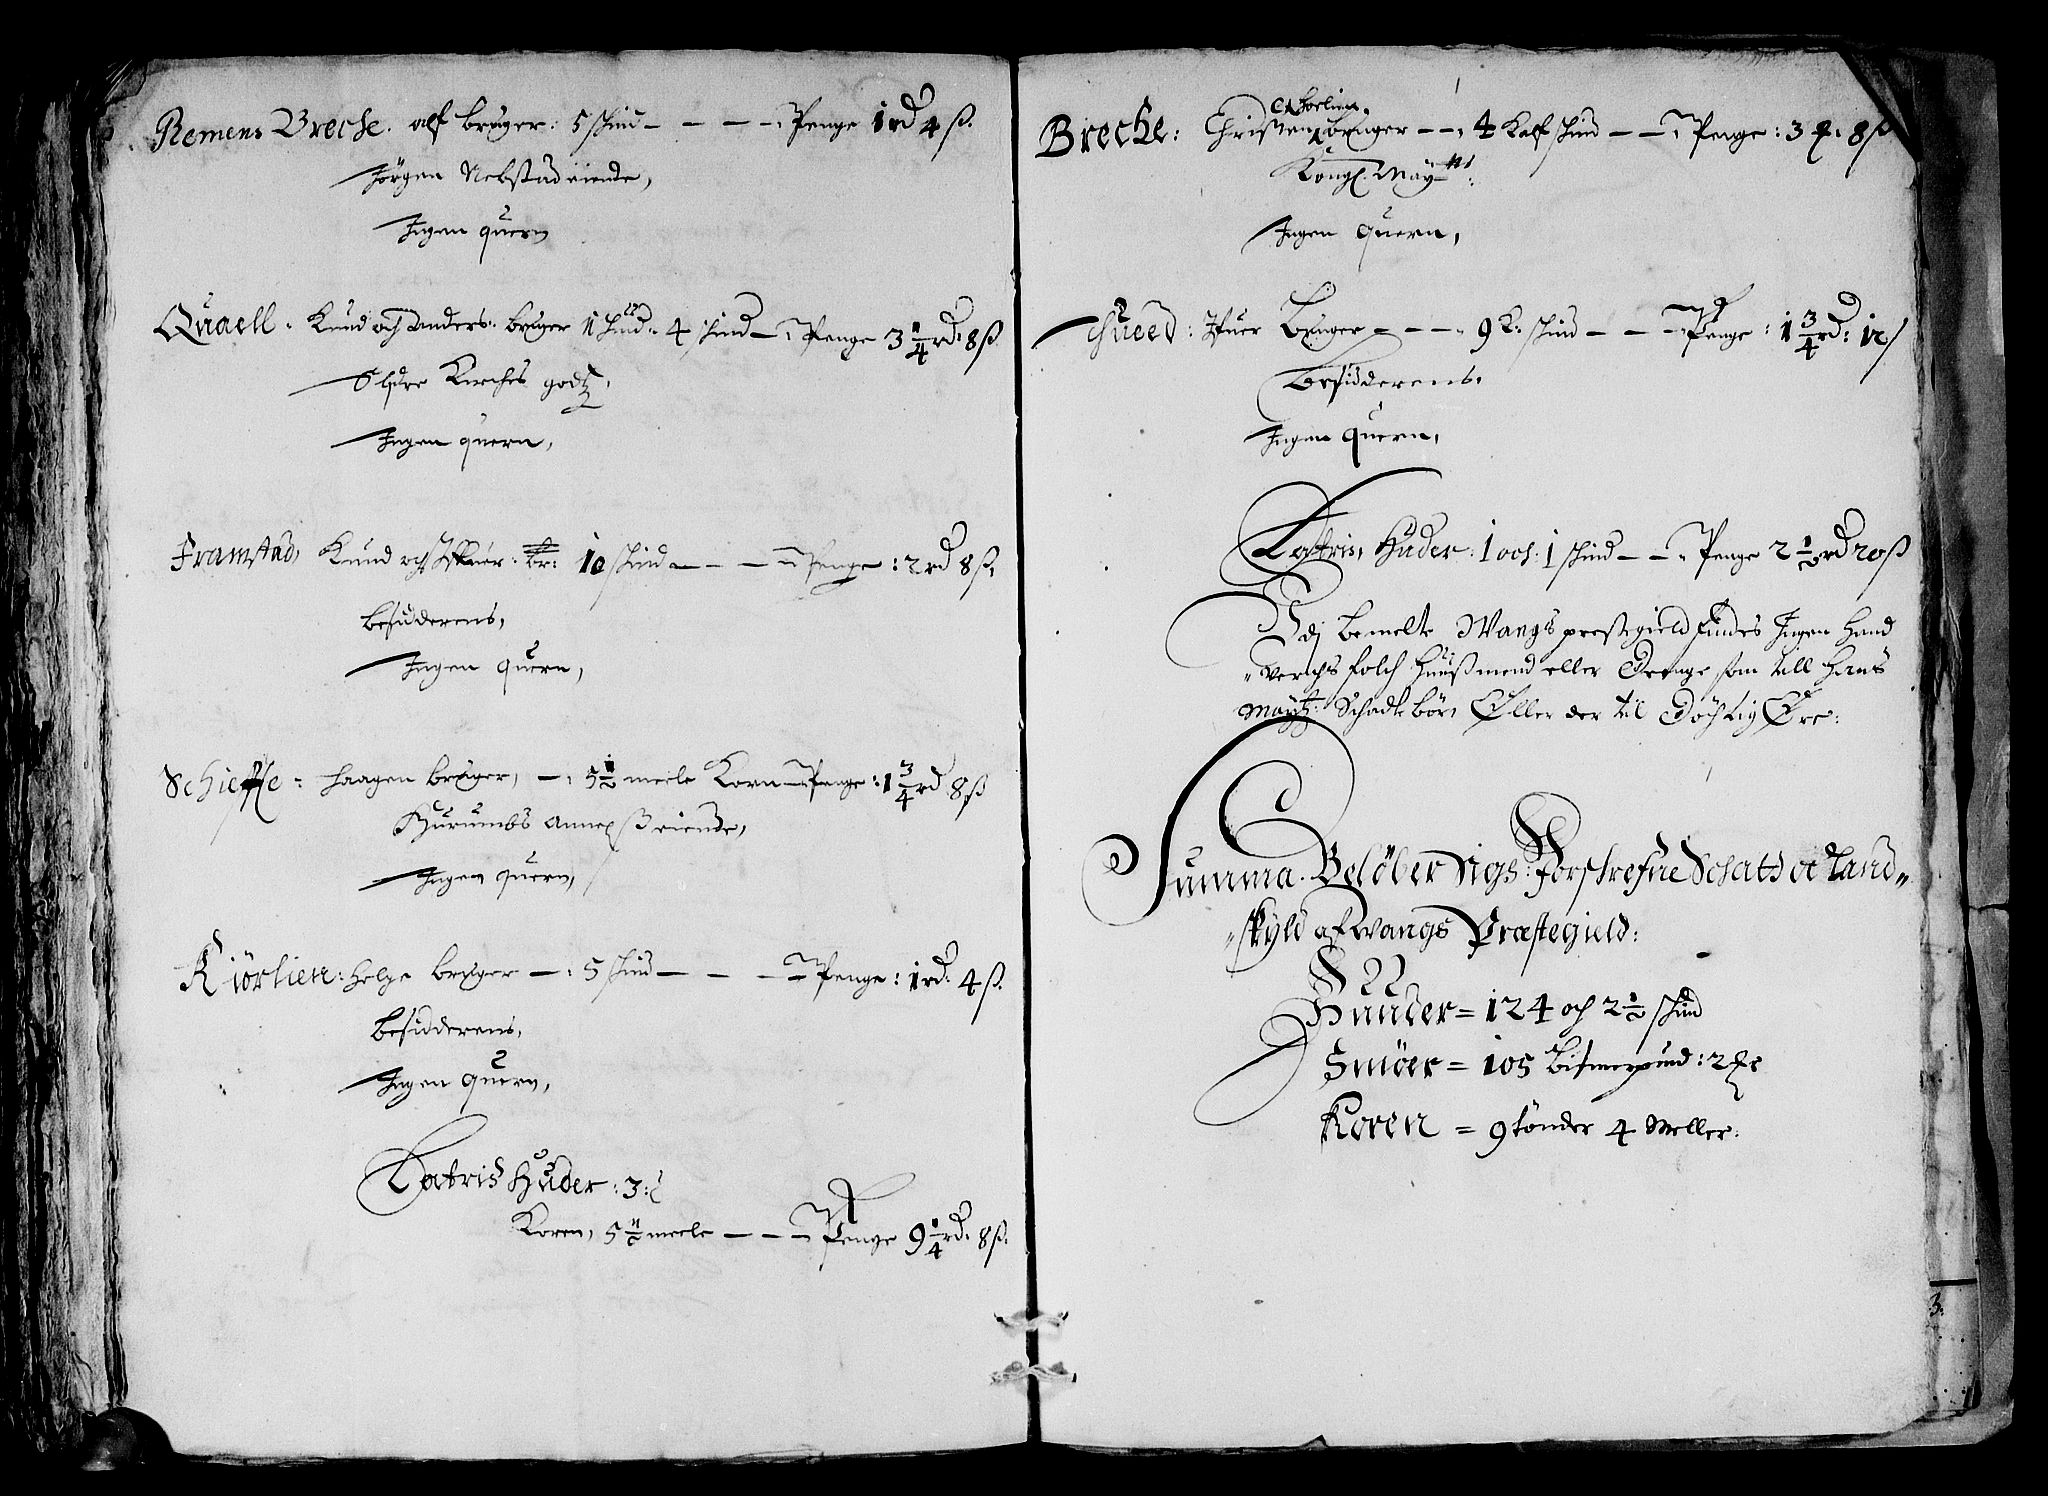 Remens Breche. alf bruger: 5 skind — — — Penge 1 rd 4 ß.
Jörgen Nebstad eiende,
Ingen quern
Quaell. Knud och Anders. bruger 1 Hud. 4 skind — Penge 3 1/4 rd. 8 ß
Slidre Kirches godz,
Ingen quern,
Framstad, Knud och br: 10 skind — — — Penge: 2 rd 8 ß,
besidderens,
Ingen quern,
Schieffle = haagen bruger, — 5 1/2 meele Korn — Penge: 1 3/4 rd 8 ß
Hurumbs Annex eiende,
Ingen quern,
Kiörlien: helge bruger — 5 skind — — — Penge: 1 rd. 4 ß.
besidderens,
Ingen quern,
Latris Huder: 3:
Koren, 5 1/2 meele — — Penge 9 1/4 rd. 8 ß.
Brecke: Christen bruger — 4 Kalfskind — — Penge: 3 8 ß
Kongl. May
Ingen quern,
Sueed: Ifuer Bruger — — — 9 k: skind — — Penge: 1 3/4 rd: 12 ß
besidderens.
Ingen quern,
Latris, Huder: 1 och: 1 skind — — Penge 2 1/2 rd 20 ß
Udj bemelte Wangs prestegield findes Ingen Hand
verchs folch Huußmend eller Drenge som till Hans
Maytz. Schadt bör, Eller der til Döchtig Ere:
Summa. Belöber sigs: forskrefne Schatt oc Land
skyld af Wangs Præstegield:
Huuder = 124 och 2 1/2 skind
Smöer = 105 Bismerpund: 2
Koren = 9 tönder 4 Meller: